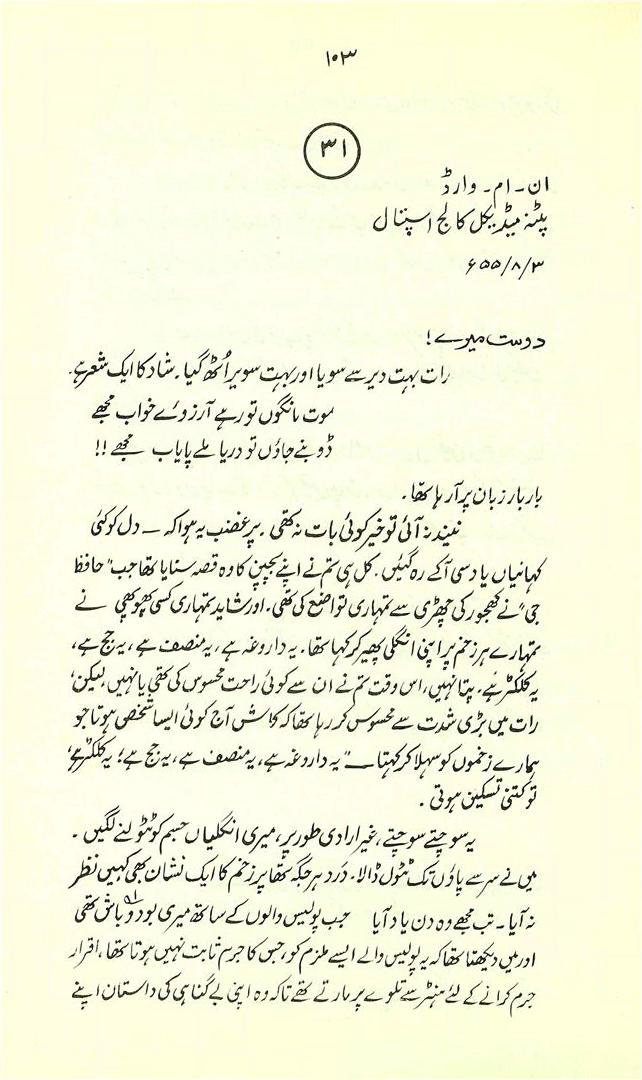 ۱۰۳
۳۱
ان۔ ام۔ وارڈ
پٹنہ میڈیکل کالج اسپتال
۳/۸/۵۵ء
دوست میرے!
رات بہت دیر سے سویا اور بہت سویرے اُٹھ گیا۔ شاد کا ایک شعر ہے۔
موت مانگوں تو رہے آرزوئے خواب مجھے
ڈوبنے جاؤں تو دریا ملے پایاب مجھے !!
بار بار زبان پر آ رہا تھا۔
نیند نہ آئی تو خیر کوئی بات نہ تھی۔ پر غضب یہ ہوا کہ — دل کو کئی
کہانیاں یاد سی آ کے رہ گئیں۔ کل ہی تم نے اپنے بچپن کا وہ قصہ سنایا تھا جب "حافظ
جی" نے کھجور کی چھڑی سے تمہاری تواضع کی تھی۔ اور شاید تمہاری کسی پھوپھی نے
تمہارے ہر زخم پر اپنی انگلی پھیر کر کہا تھا۔ یہ داروغہ ہے، یہ منصف ہے، یہ جج ہے،
یہ کلکٹر ہے۔ پتا نہیں، اس وقت تم نے ان سے کوئی راحت محسوس کی تھی یا نہیں، لیکن،
رات میں بڑی شدت سے محسوس کر رہا تھا کہ کاش آج کوئی ایسا شخص ہوتا جو
ہمارے زخموں کو سہلا کر کہتا — "یہ داروغہ ہے، یہ منصف ہے، یہ جج ہے؛ یہ کلکٹر ہے"
تو کتنی تسکین ہوتی۔
یہ سوچتے سوچتے، غیر ارادی طور پر، میری انگلیاں جسم کو ٹٹولنے لگیں۔
میں نے سر سے پاؤں تک ٹٹول ڈالا۔ درد ہر جگہ تھا پر زخم کا ایک نشان بھی کہیں نظر
نہ آیا۔ تب مجھے وہ دن یاد آیا جب پولیس والوں کے ساتھ میری بود و باش تھی
اور میں دیکھتا تھا کہ یہ پولیس والے ایسے ملزم کو، جس کا جرم ثابت نہیں ہوتا تھا، اقرار
جرم کرانے کے لئے ہنٹر سے تلوے پر مارتے تھے تاکہ وہ اپنی بے گناہی کی داستان اپنے